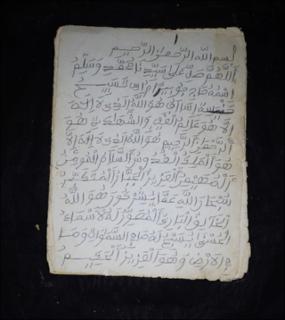 بسم الله الرحمن الرحيم
اللهم صل على سيدنا محمد وسلم
هو الله الذي لا اله
الا هو عالم الغيب والشهادة هو
الرحمن الرحيم هو الله الذي لا اله الا
هو الملك القدوس السلام المؤمن
المهيمن العزيز الجبار المتكبر
سبحان الله عما يشركون هو الله
الخالق البارئ المصور له الاسماء
الحسنى يسبح له ما في السموات وما
في الارض وهو العزيز الحكيم